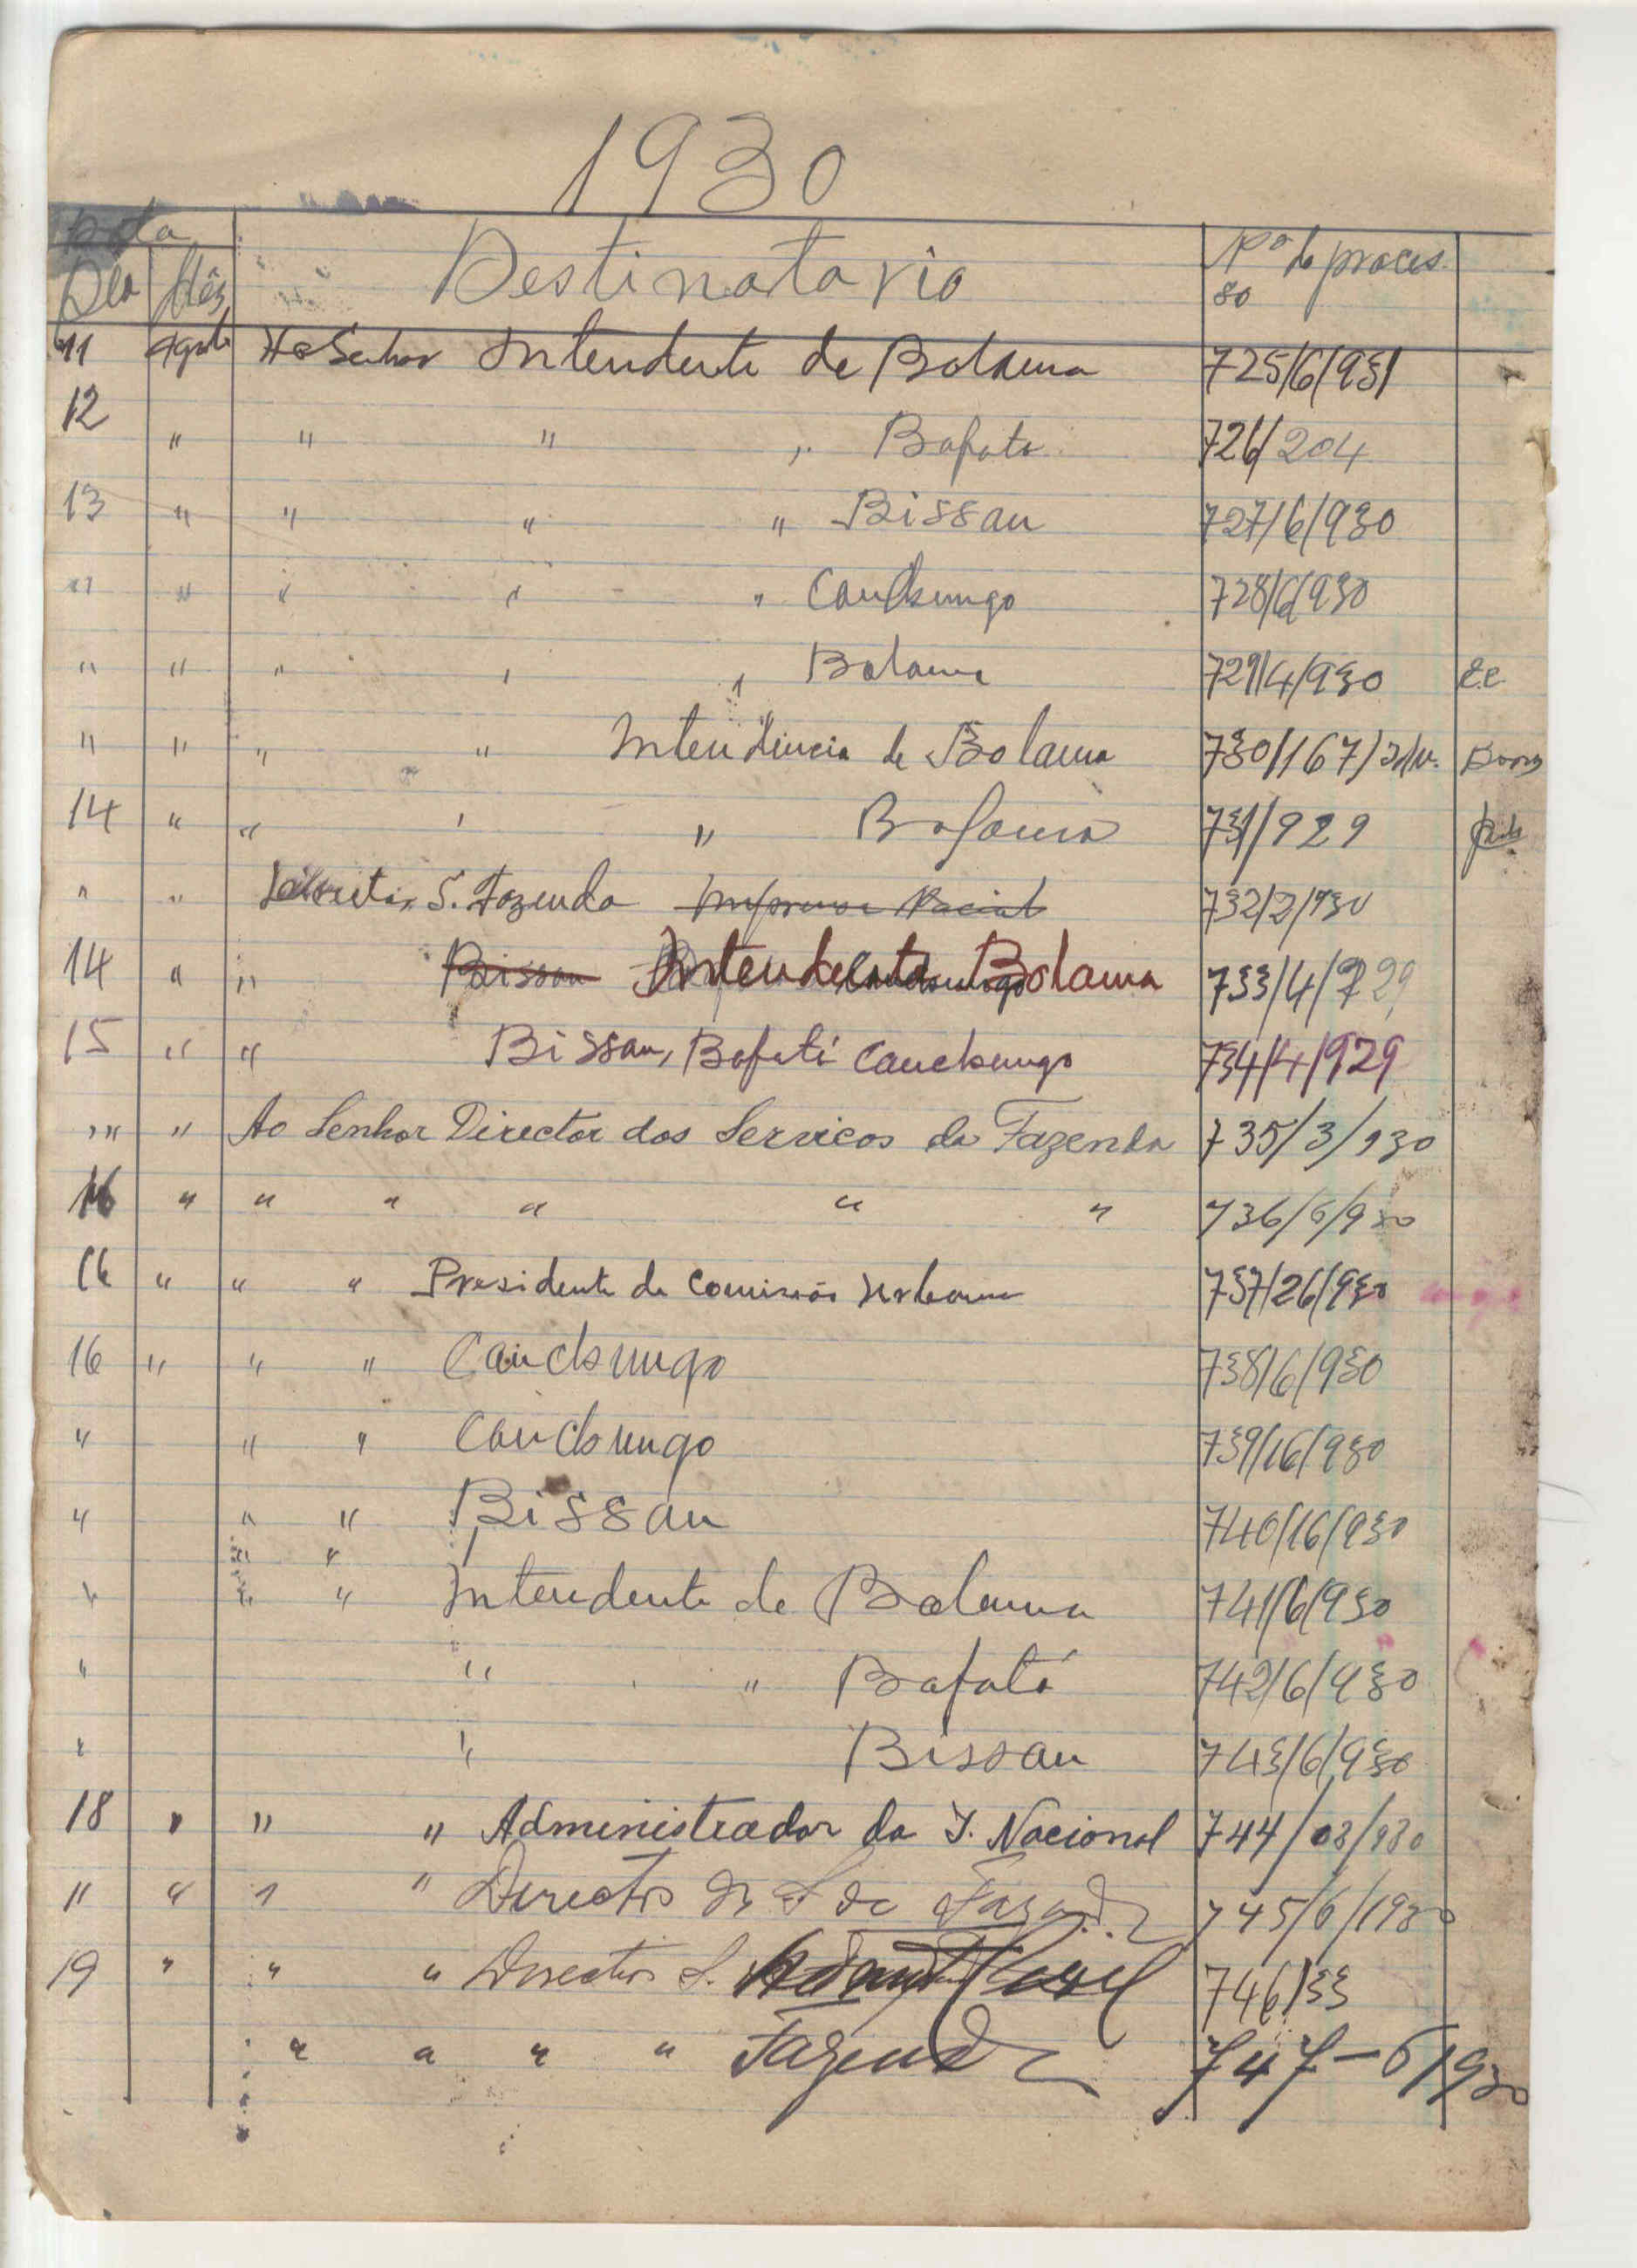 1930
Data
Dia Mês Destinatario Nº do proces
so
11 Agosto Ao Senhor Intendente de Bolama 725/6/931
12 " " " " Bafata 726/204
13 " " " " Bissau 727/6/930
" " " " " Canchungo 728/6/930
" " " " " Bolama 729/4/930
" " " " Intendencia de Bolama 730/167/
14 " " " " 731/929
" " S. Fazenda Imprensa Nacional 732/2/930
14 " " Bissau Intendente Bolama 733/4/929
15 " " Bissau, Bafatá Canchungo 734/4/929
" " Ao Senhor Director dos Servicos da Fazenda 735/3/930
16 " " " " " " 736/6/930
16 " " " Presidente da Comissão Urbana 737/26/930
16 " " " Canchungo 738/6/930
" " " Canchungo 739/16/930
" " " Bissau 740/16/930
" "
" " " Intendente de Bolama 741/6/930
" " " Bafatá 742/6/930
" " Bissau 743/6/930
18 " " " Administrador da I. Nacional 744/03/930
" " " " Director da S da Fazenda 745/6/1930
19 " " " Director S. 746/33
" " " " Fazenda 747-6/930